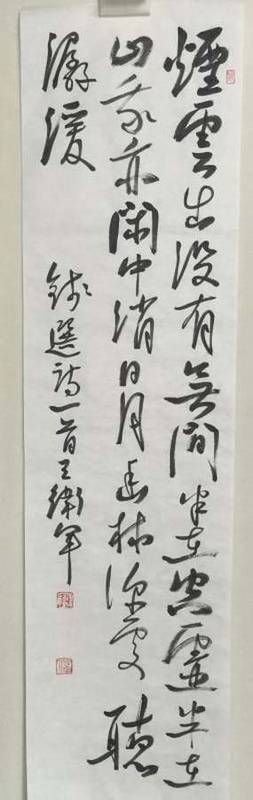 煙雲出没有無間半在空靈半在
山我亦閑中消日月幽林深處聽
潺湲
錢選詩一首王衛軍